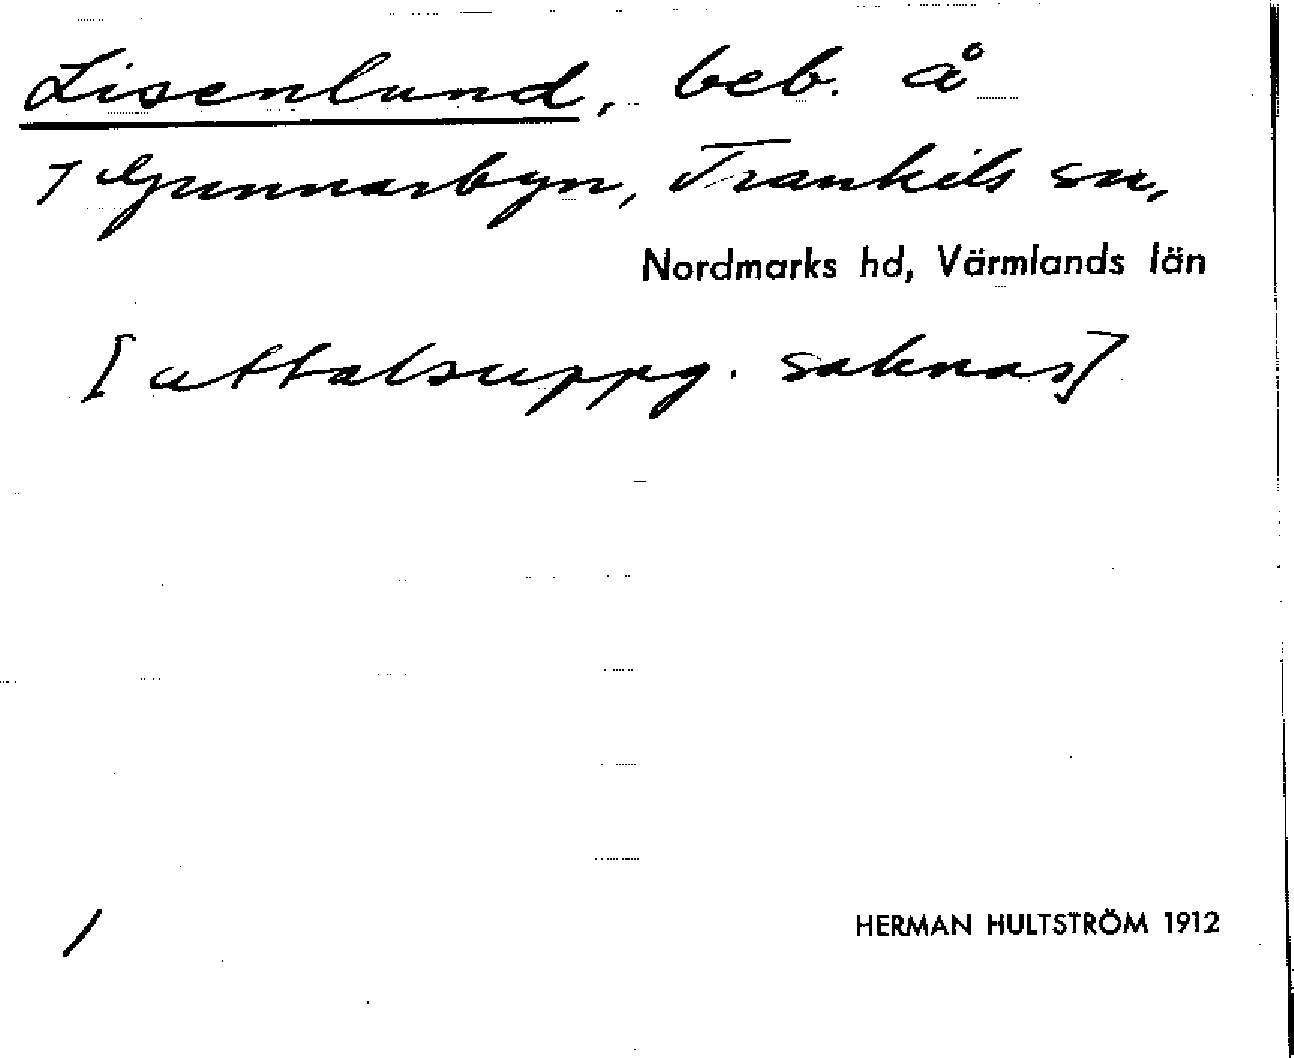 Lisenlund, beb. å
7 Gunnarbyn, Trankils sn,
Nordmarks hd, Värmlands län
[uttalsuppg. saknas]
/
HERMAN HULTSTRÖM 1912